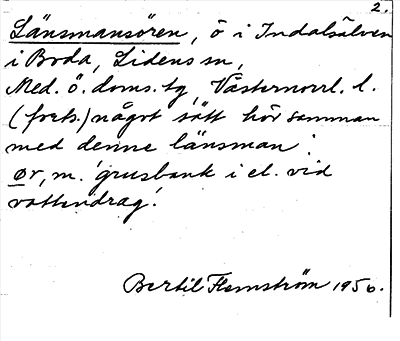 2.
Länsmansören, ö i Indalsälven
i Boda, Lidens sn,
Med. ö. doms. tg, Västernorrl. l.
(forts.) något sätt hör samman
med denne länsman.
ør, m. 'grusbank i el. vid
vattendrag'.
Bertil Flemström 1956.